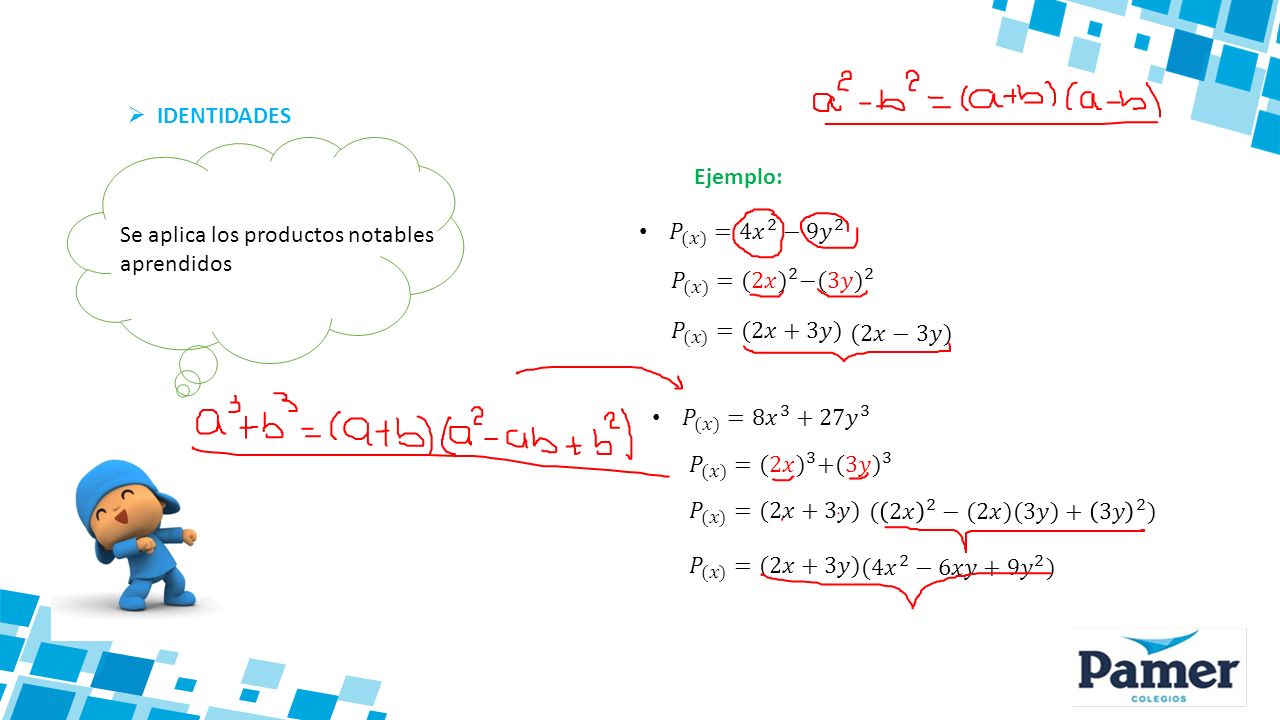 a² - b² = (a+b)(a-b)
➢ IDENTIDADES
Se aplica los productos notables
aprendidos
Ejemplo:
• P₍ₓ₎ = 4x² − 9y²
P₍ₓ₎ = (2x)²−(3y)²
P₍ₓ₎ = (2x + 3y) (2x − 3y)
a³+b³ = (a+b)(a² - ab + b²)
• P₍ₓ₎ = 8x³ + 27y³
P₍ₓ₎ = (2x)³+(3y)³
P₍ₓ₎ = (2x + 3y) ((2x)² − (2x)(3y) + (3y)²)
P₍ₓ₎ = (2x + 3y)(4x² − 6xy + 9y²)
Pamer
COLEGIOS